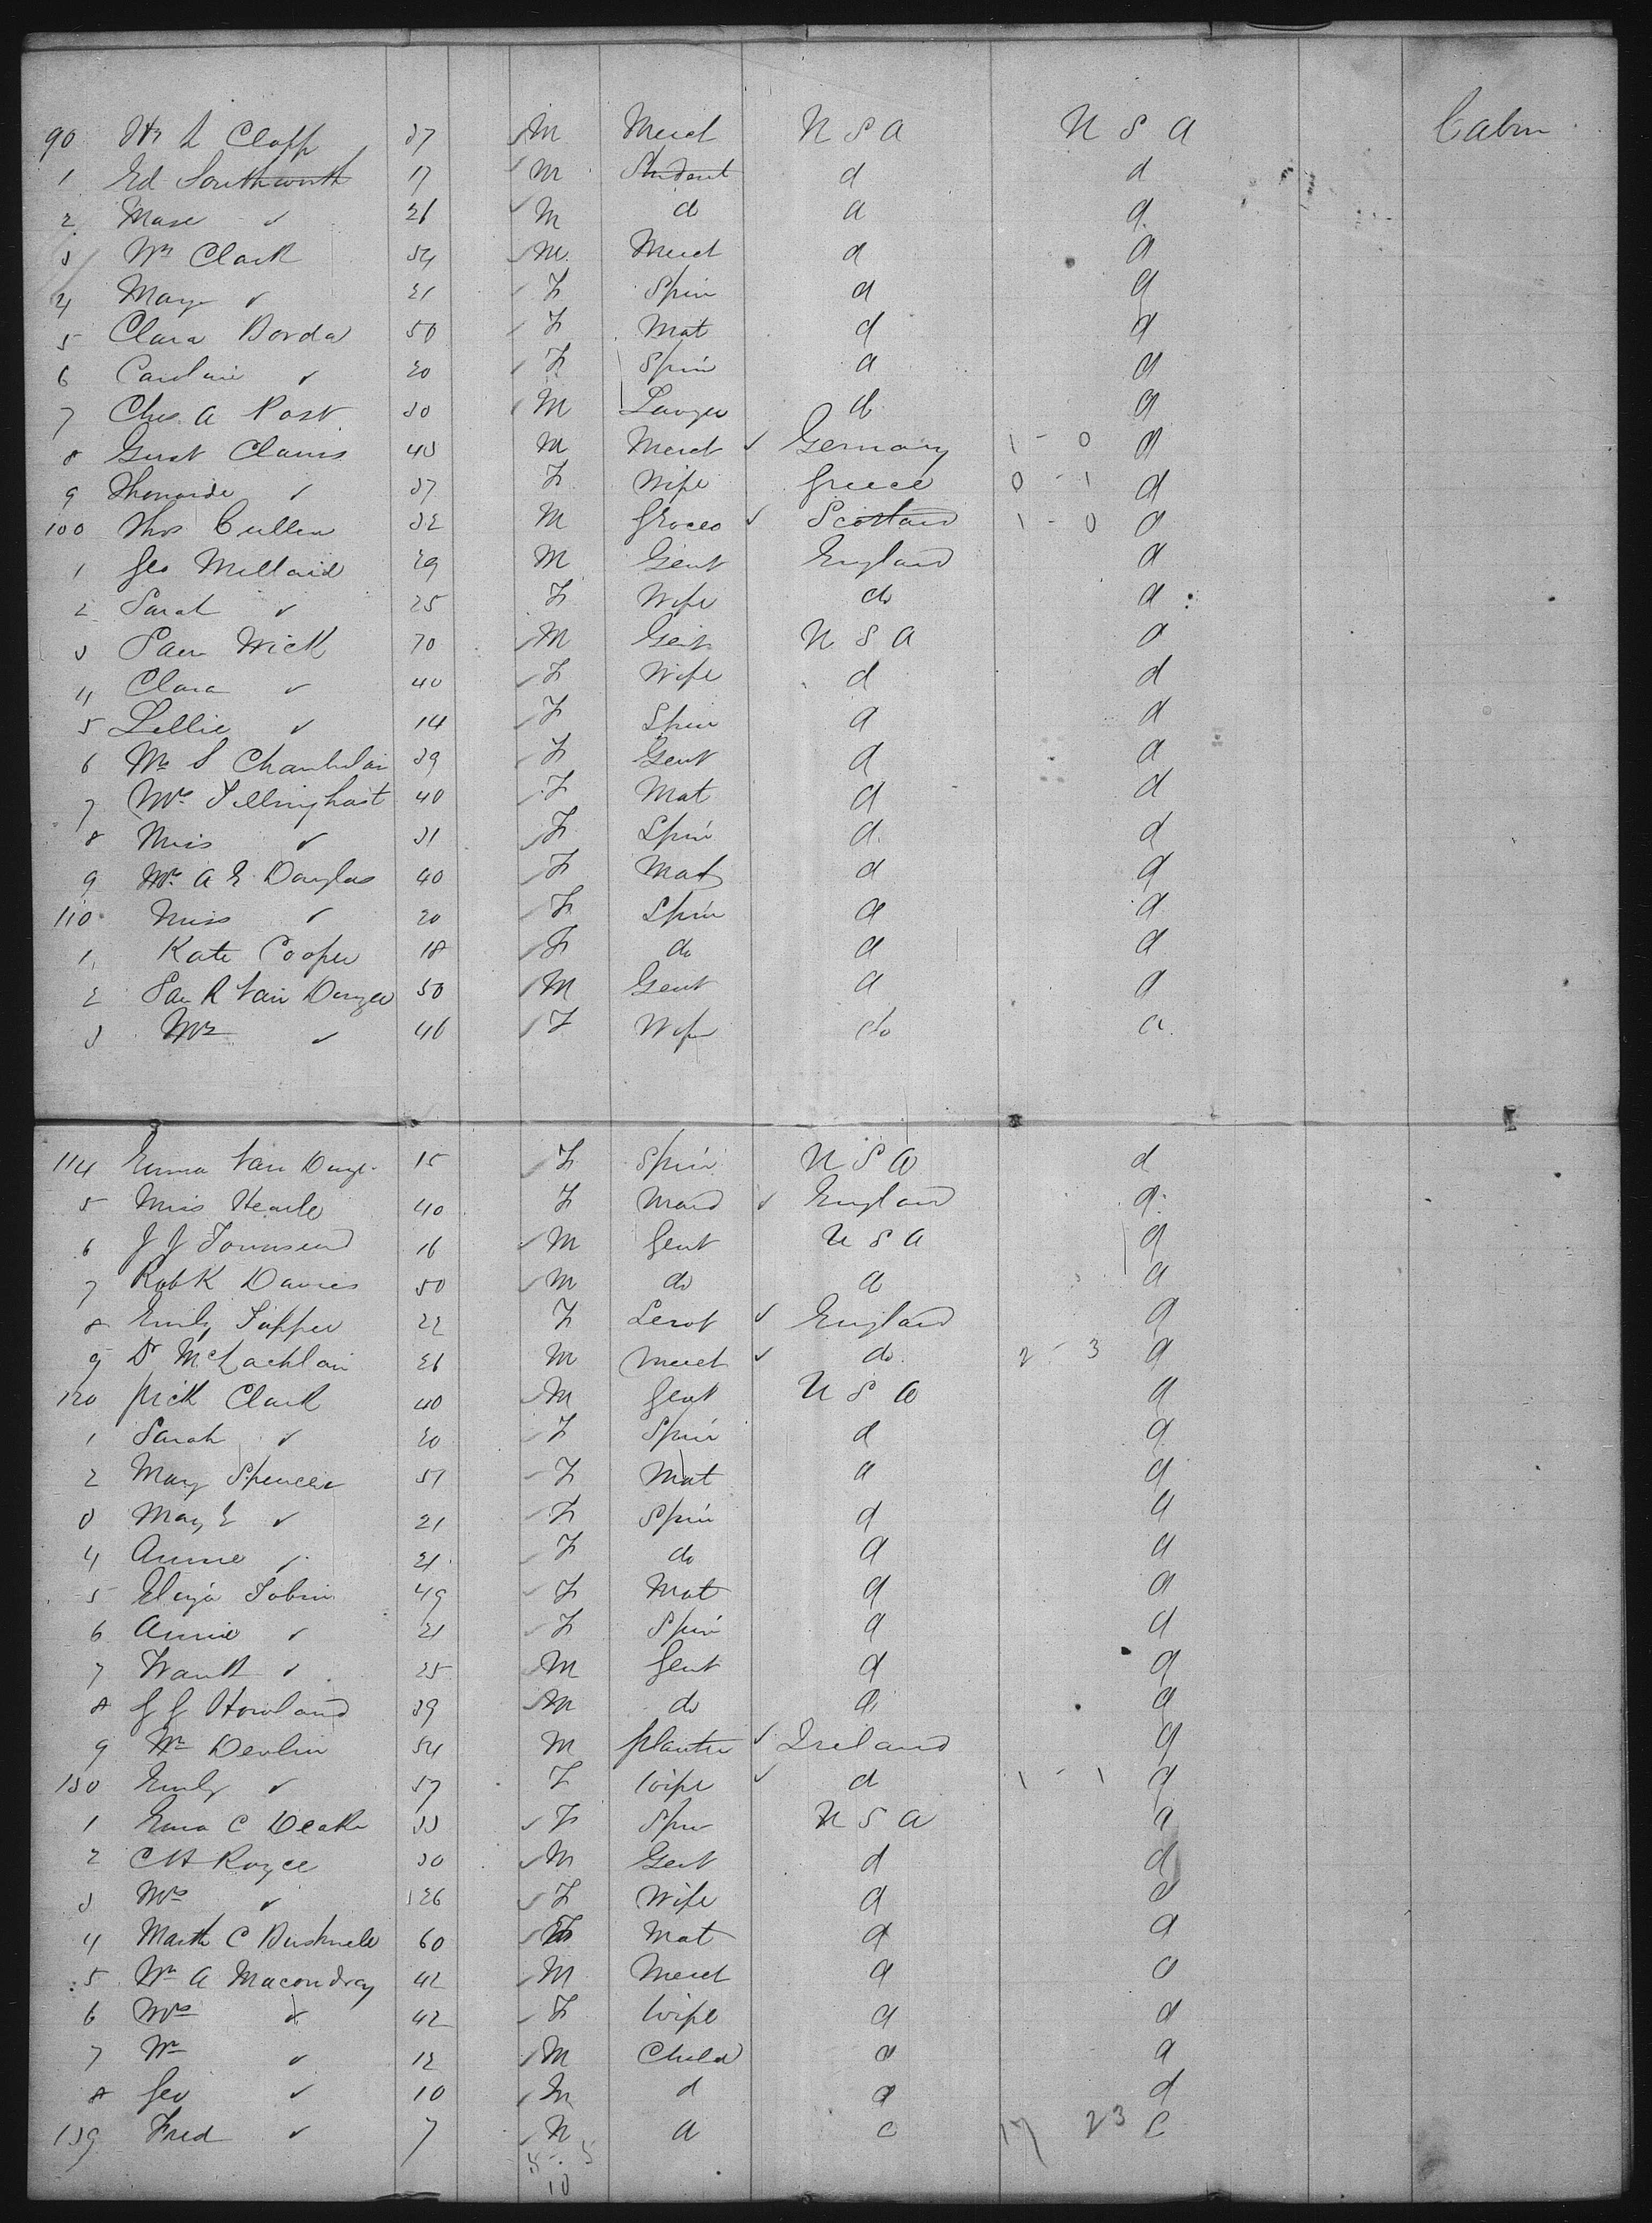 90 L Clapp 37 M Merct U S A U S A Cabin
1 Ed Southworth 17 M Student d d
2 Mase ✓ 26 M do d d
3 Wm Clark 54 M Merct d d
4 Mary ✓ 21 F Spin d d
5 Clara Borda 50 F Mat d d
6 Caroline ✓ 20 F Spin d d
7 Chs. A Post 30 M Lawyer d d
8 Gust Clauss 43 M Merct ✓ Germany 1 - 0 d
9 ✓ 37 F Wife Greece 0 - 1 d
100 Thos Cullen 32 M Grocer ✓ Scotland 1 - 0 d
1 Geo Millard 29 M Gent England d
2 Sarah ✓ 25 F Wife do d
3 Sam Wick 70 M Gent U S A d
4 Clara ✓ 40 F Wife d d
5 Lillie ✓ 14 F Spin d d
6 Mr S Chamberlain 39 F Gent d d
7 Mrs Tillinghast 40 F Mat d d
8 Miss ✓ 31 F Spin d d
9 Mrs A E Douglas 40 F Mat d d
110 Miss ✓ 20 F Spin d d
1 Kate Cooper 18 F do d d
2 Sam R Van Duzer 50 M Gent d d
3 Mrs ✓ 46 F Wife do d
114 Emma Van Duzr 15 F Spin U S A d
5 Miss Hearle 40 F Maid ✓ England d
6 J J Townsend 16 M Gent U S A d
7 RobK Davies 50 M do d d
8 Emily Tupper 22 F Servt ✓ England d
9 Dr McLachlan 26 M Merct ✓ do 2 - 3 d
120 Clark 40 M Gent U S A d
1 Sarah ✓ 20 F Spin d d
2 Mary Spencer 51 F Mat d d
3 Mary E ✓ 21 F Spin d d
4 Annie ✓ 21 F do d d
5 Eliza Tobin 49 F Mat d d
6 Annie ✓ 21 F Spin d d
7 Frank ✓ 25 M Gent d d
8 G G Howland 39 M do d d
9 Wm Devlin 54 M planter ✓ Ireland d
130 Emily ✓ 37 F Wife ✓ d 1 - 1 d
1 Emma C Deake 33 F Spin U S A d
2 C H Royce 30 M Gent d d
3 Mrs ✓ 26 F Wife d d
4 Marth C Bushnell 60 F Mat d d
5 Wm A Macondray 42 M Merct d d
6 Mrs ✓ 42 F Wife d d
7 Wm ✓ 12 M Child d d
8 Geo ✓ 10 M d d d
139 Fred ✓ 7 M d 17 23
5 - 5
10